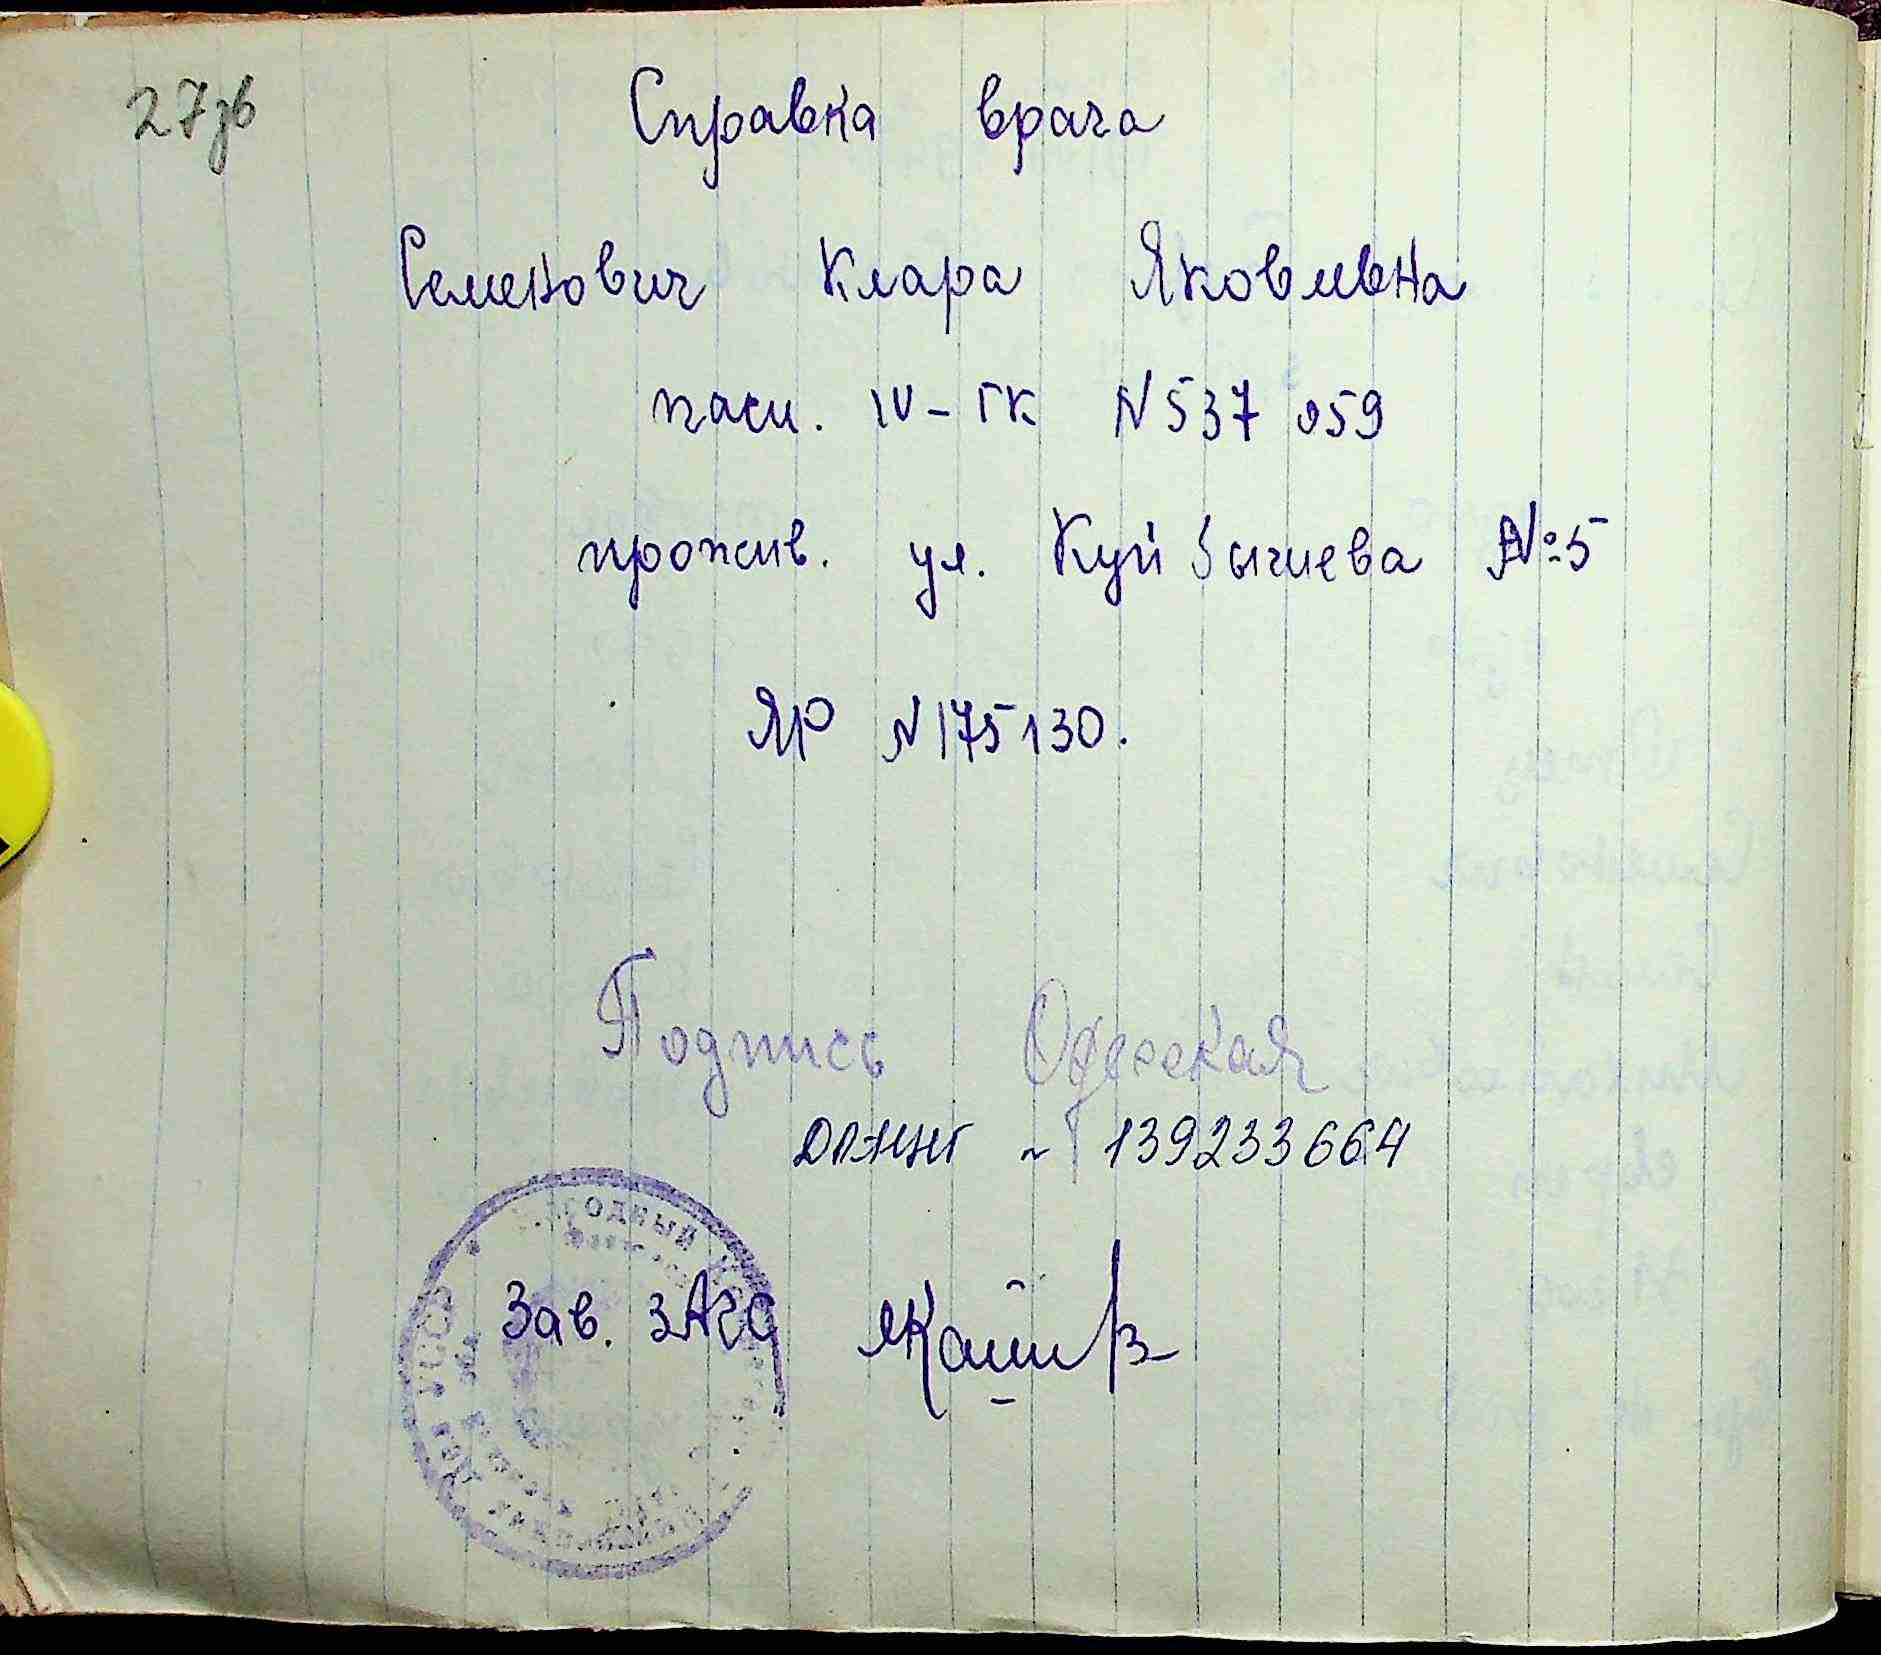 27зв
Справка врача
Семенович Клара Яковлевна
пасп. IV-ГК N 537 059
прожив. ул. Куйбышева №5
ЯР N 175130.
Подпись Одесская
139233664
Зав. ЗАГС